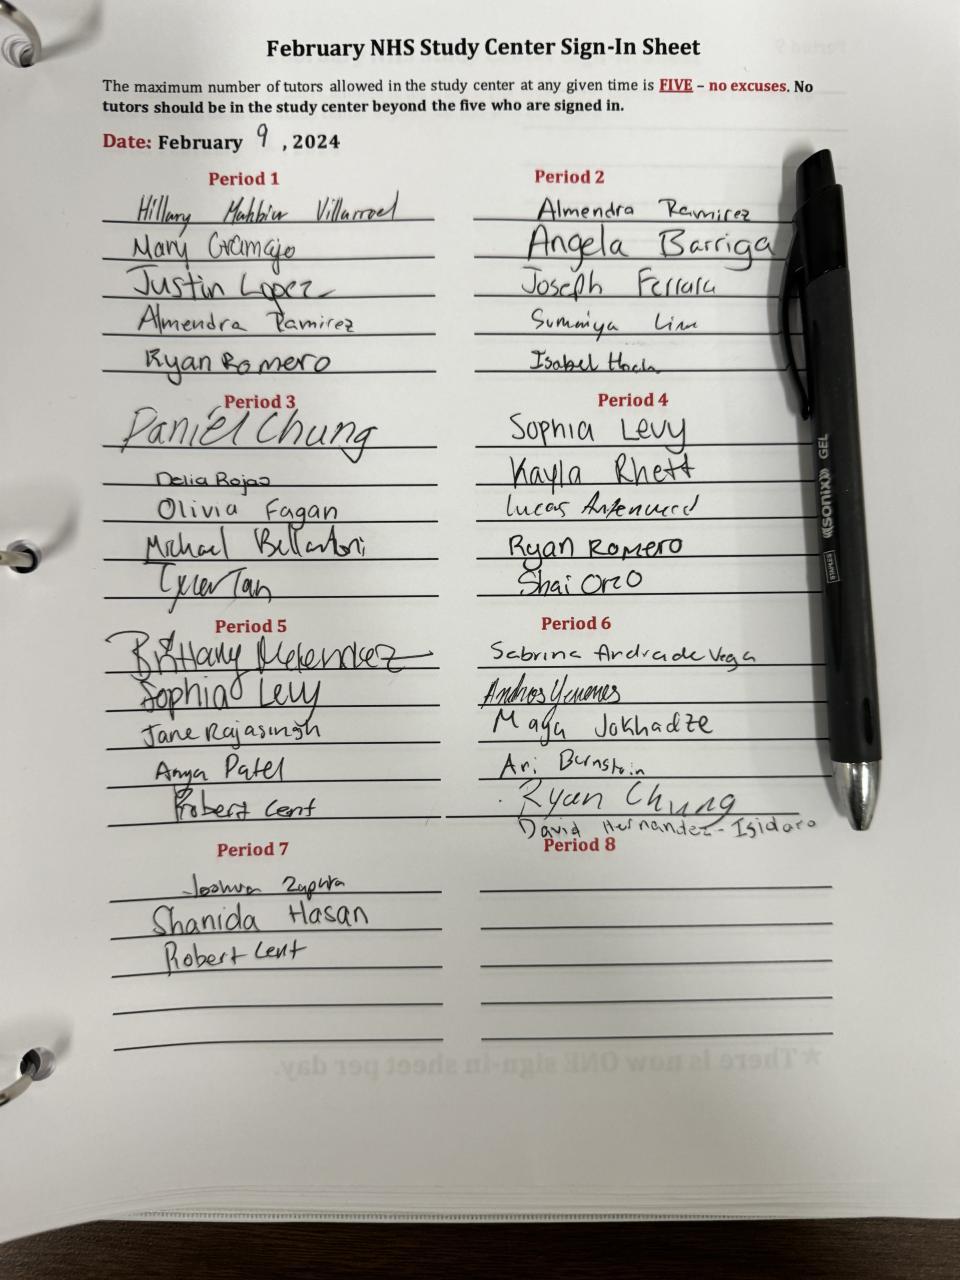 February NHS Study Center Sign-In Sheet
The maximum number of tutors allowed in the study center at any given time is FIVE – no excuses. No
tutors should be in the study center beyond the five who are signed in.
Date: February 9, 2024
Period 1
Hillary Villarroel
Mary Gramajo
Justin Lopez
Almendra Ramirez
Ryan Romero
Period 2
Almendra Ramirez
Angela Barriga
Joseph Ferrara
Summiya
Isabel
Period 3
Daniel Chung
Delia Rojas
Olivia Fagan
Michael Bellantoni
Tyler Tan
Period 4
Sophia Levy
Kayla Rhett
Lucas
Ryan Romero
Shai Orzo
Period 5
Brittany Melendez
Sophia Levy
Jane Rajasingh
Anya Patel
Robert Cent
Period 6
Sabrina Andrade Vega
Andros Ymenes
Maya Jokhadze
Ari Burnstein
Ryan Chung
David Hernandez-Isidoro
Period 7
Joshua Zapata
Shanida Hasan
Robert Cent
Period 8
★There is now ONE sign-in sheet per day.
STAPLES
sonix GEL